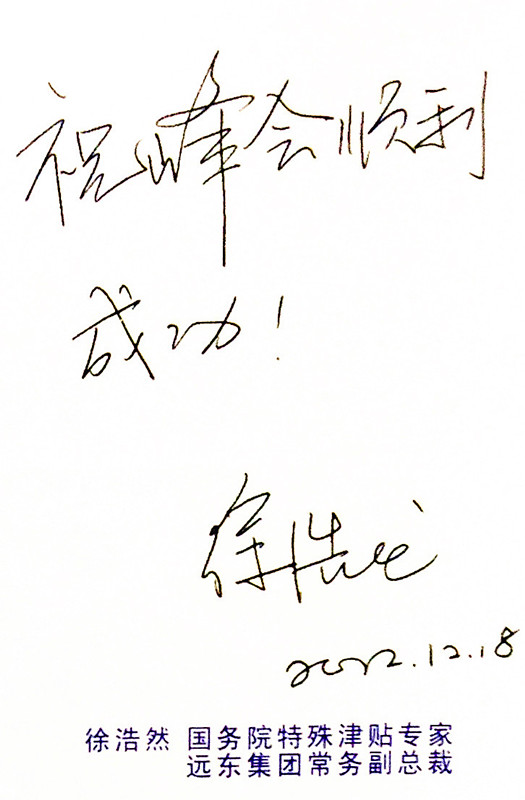 祝峰会顺利
成功！
徐浩然
2022.12.18
徐浩然 国务院特殊津贴专家
远东集团常务副总裁